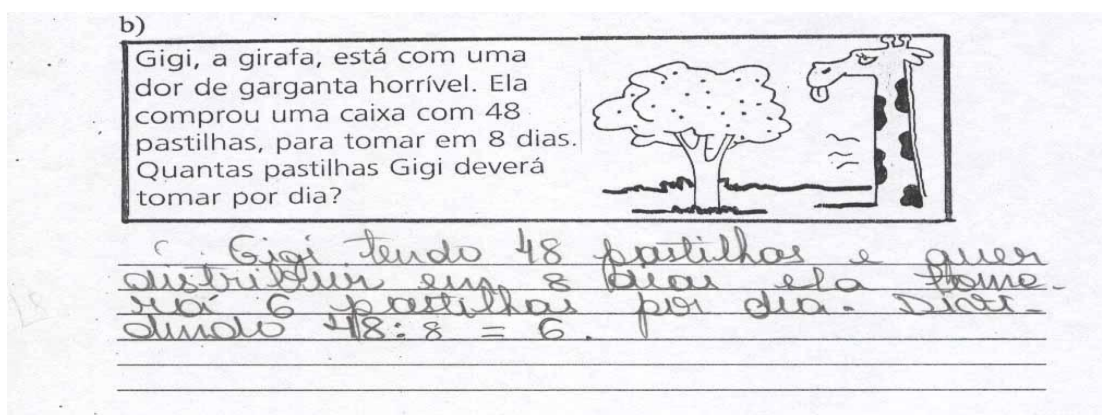 b)
Gigi, a girafa, está com uma
dor de garganta horrível. Ela
comprou uma caixa com 48
pastilhas, para tomar em 8 dias.
Quantas pastilhas Gigi deverá
tomar por dia?
Gigi tendo 48 pastilhas e quer
distribuir em 8 dias ela toma-
rá 6 pastilhas por dia. Divi-
dindo 48:8 = 6.